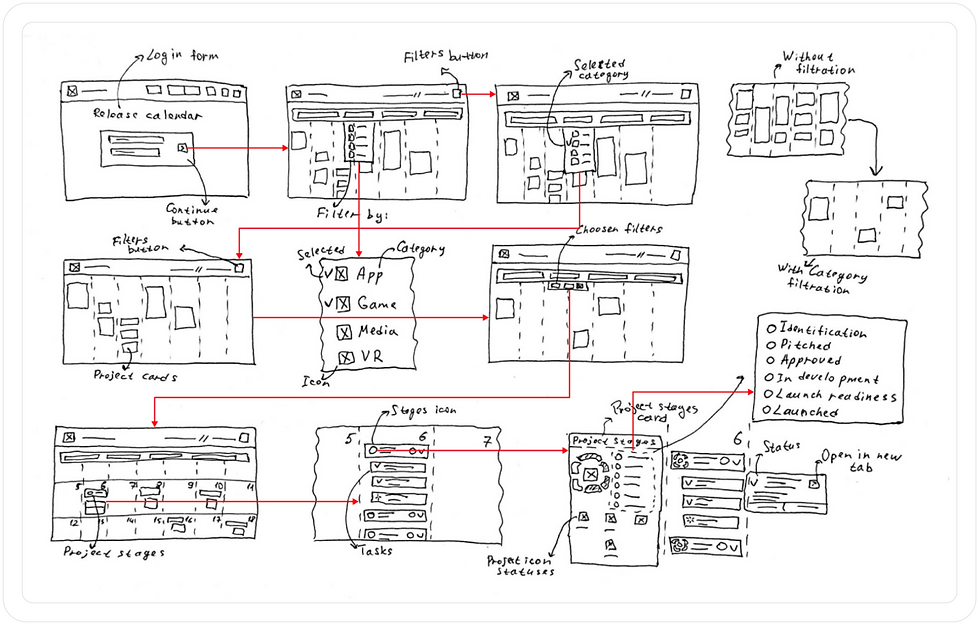 Login form
Release calendar
Continue
button
Filters button
Filter by:
Selected
category
Without
filtration
With Category
filtration
Filters
button
Project cards
Selected
Category
App
Game
Media
VR
Icon
Choosen filters
Identification
Pitched
Approved
In development
Launch readiness
Launched
5 6 7 8 9 10 11
12 13 14 15 16 17 18
Project stages
Stages icon
5 6 7
Tasks
Project stages
card
Project stages
Project icon
statuses
6
Status
Open in new
tab